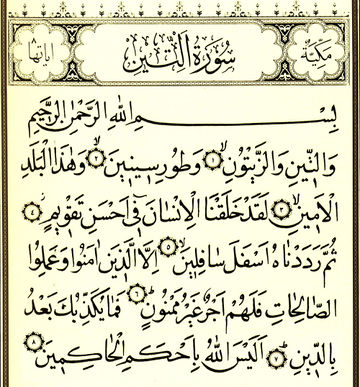 مكية سورة التين اياتها ٨
بِسْمِ اللهِ الرَّحْمٰنِ الرَّحِيمِ
وَالتِّينِ وَالزَّيْتُونِ ۝١ وَطُورِ سِينِينَ ۝٢ وَهٰذَا الْبَلَدِ
الْاَمِينِ ۝٣ لَقَدْ خَلَقْنَا الْاِنْسَانَ فِى اَحْسَنِ تَقْوِيمٍ ۝٤
ثُمَّ رَدَدْنَاهُ اَسْفَلَ سَافِلِينَ ۝٥ اِلَّا الَّذِينَ اٰمَنُوا وَعَمِلُوا
الصَّالِحَاتِ فَلَهُمْ اَجْرٌ غَيْرُ مَمْنُونٍ ۝٦ فَمَا يُكَذِّبُكَ بَعْدُ
بِالدِّينِ ۝٧ اَلَيْسَ اللهُ بِاَحْكَمِ الْحَاكِمِينَ ۝٨